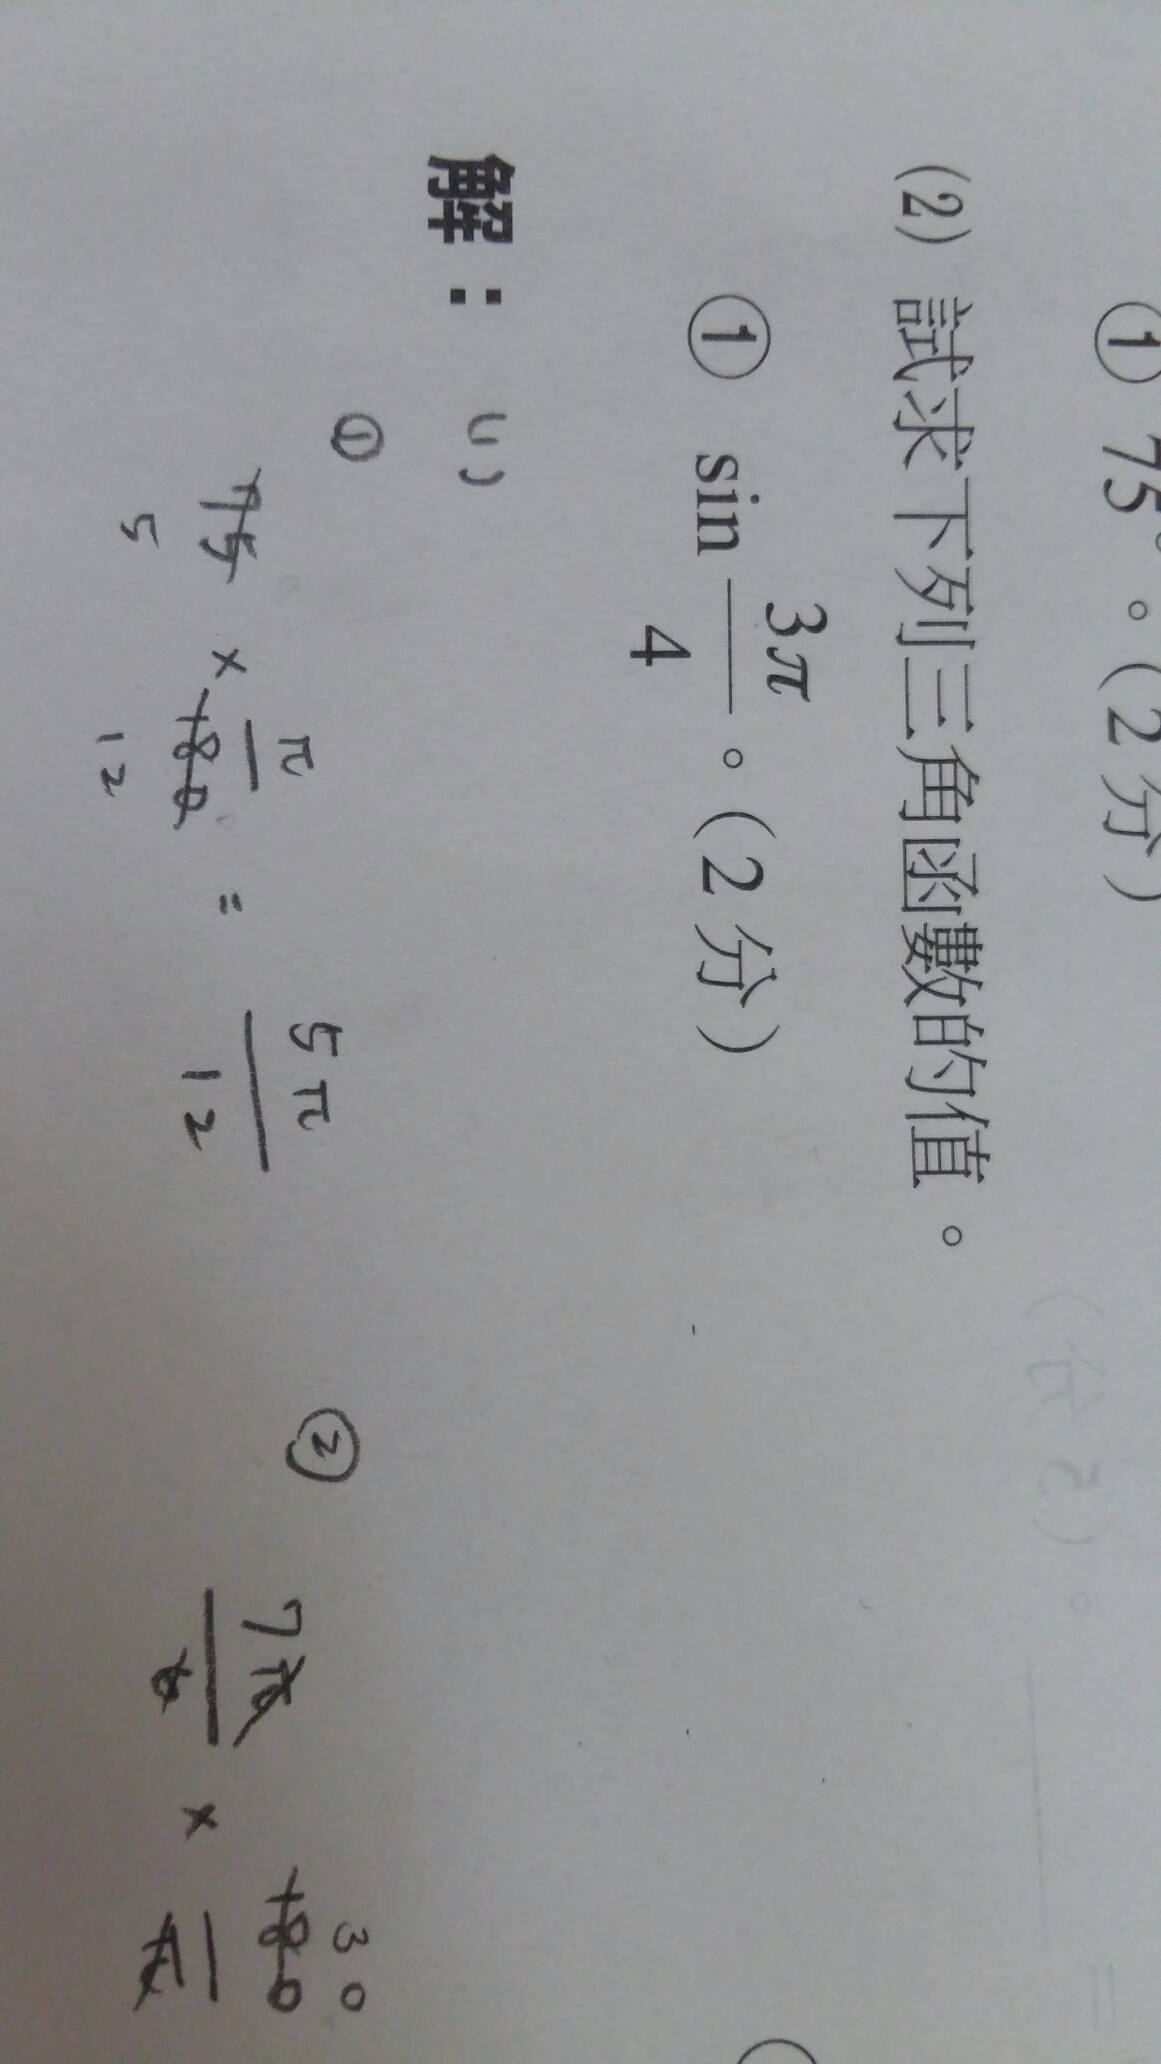 ① 75°。(2分)
(2) 試求下列三角函數的值。
① sin 3π/4。(2分)
解：(1)
① 75 × π/180 = 5π/12
5 12
② 7π/6 × 180/π
30